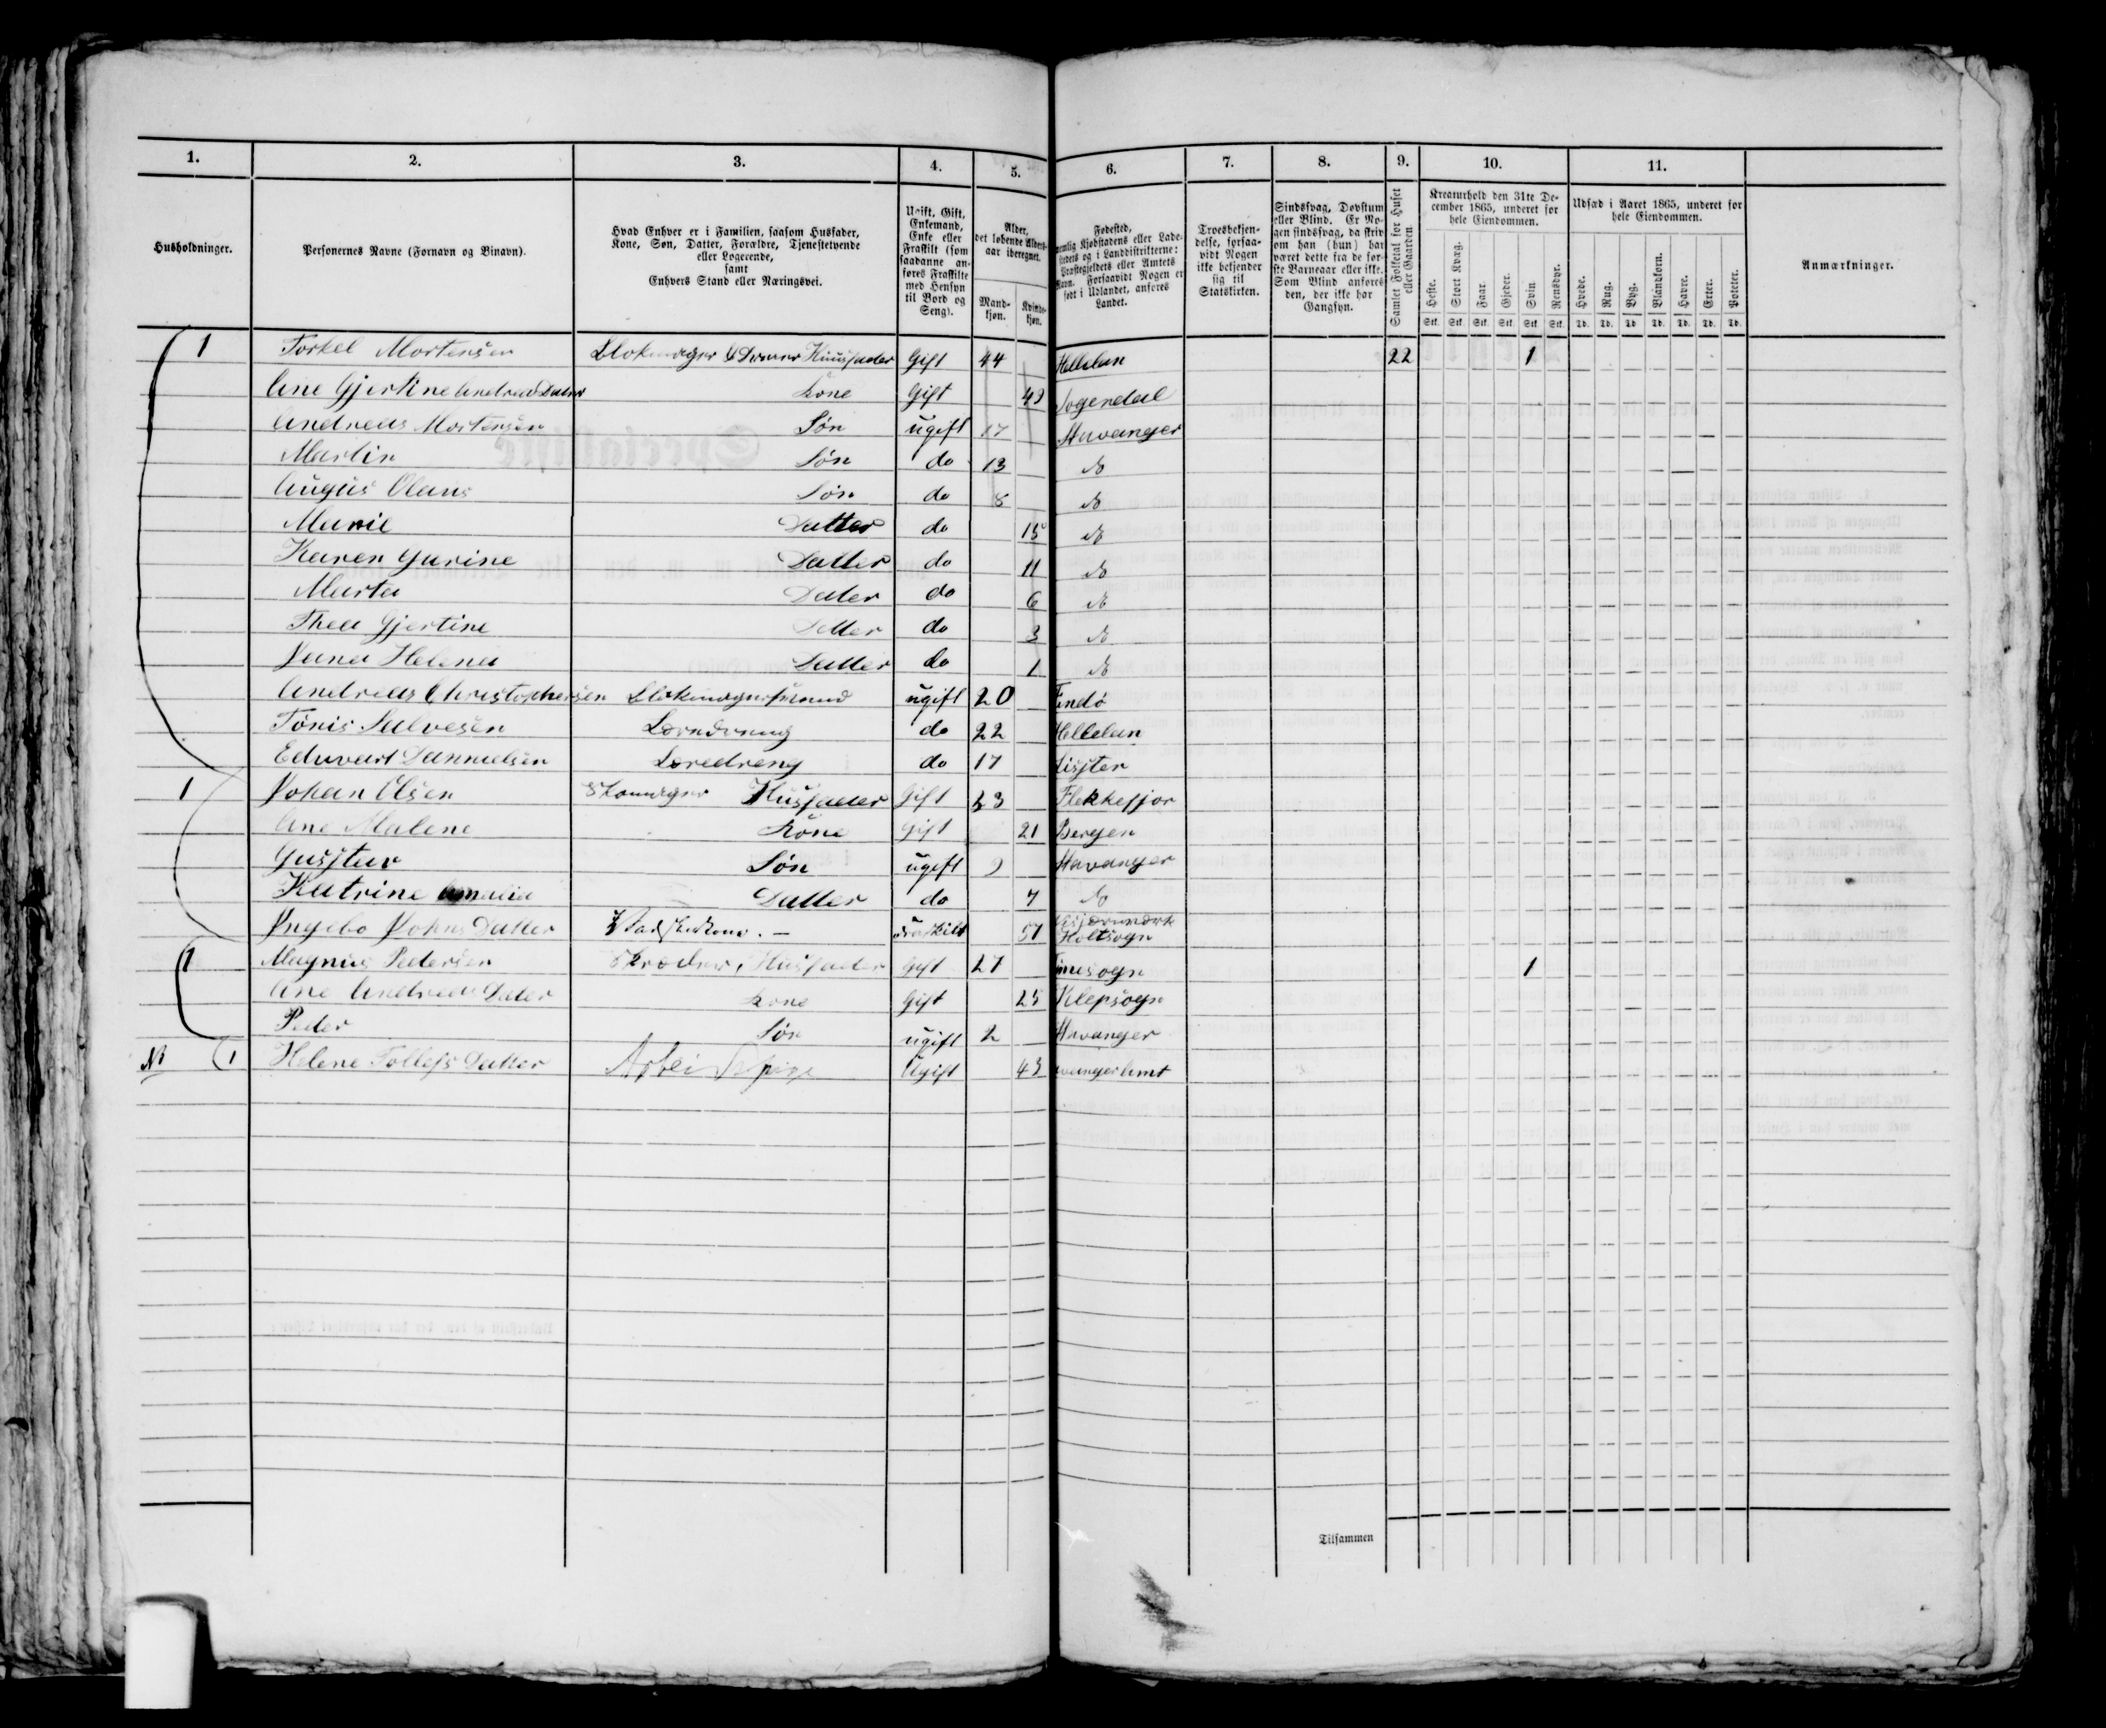 1. 2. 3. 4. 5. 6. 7. 8. 9. 10. 11.
Husholdninger.
Personernes Navne (Fornavn og Binavn).
Hvad Enhver er i Familien, saasom Husfader,
Kone, Søn, Datter, Forældre, Tjenestetyende
eller Logerende,
samt
Enhvers Stand eller Næringsvei.
Ugift, Gift,
Enkemand,
Enke eller
Fraskilt (som
saadanne an-
føres Fraskilte
med Hensyn
til Bord og
Seng).
Alder,
det løbende Alders-
aar iberegnet.
Mand-
kjøn.
Kvinde-
kjøn.
Fødested,
nemlig Kjøbstadens eller Lade-
stedets og i Landdistrikterne:
Præstegjeldets eller Amtets
Navn. Forsaavidt Nogen er
født i Udlandet, anføres
Landet.
Troesbekjen-
delse, forsaa-
vidt Nogen
ikke bekjender
sig til
Statskirken.
Sindssvag, Døvstum
eller Blind. Er No-
gen sindssvag, da skriv
om han (hun) har
været dette fra de før-
ste Barneaar eller ikke.
Som Blind anføres
den, der ikke har
Gangsyn.
Samlet Folketal for Huset
eller Gaarden.
Kreaturhold den 31te De-
cember 1865, underet for
hele Eiendommen.
Heste. Stort Kvæg. Faar. Gjeder. Svin Rensdyr.
Stk. Stk. Stk. Stk. Stk. Stk.
Udsæd i Aaret 1865, underet for
hele Eiendommen.
Hvede. Rug. Byg. Blandkorn. Havre. Erter. Poteter.
Td. Td. Td Td. Td. Td. Td.
Anmærkninger.
1 Torkel Mortensen Husfader Gift 44 Hellelan 22 1
Ane Gjertine Andreas Datter Kone Gift 49 Sogendal
Andreas Mortensen Søn ugift 17 Stavanger
Martin Søn do 13 do
Augus Olaus Søn do 8 do
Marie Datter do 15 do
Karen Gurine Datter do 11 do
Marta Dater do 6 do
Thea Gjertine Datter do 3 do
Jana Helena Datter do 1 do
Andreas Christophersen ugift 20 Findø
Tønis Salvesen Loredreng do 22 Hellelan
Eduvart Dannielsen Loredreng do 17 Lister
1 Johan Olsen Skomager Husfader Gift 23 Flekkefjor
Ane Malene Kone Gift 21 Bergen
Gustav Søn ugift 9 Stavanger
Katrine Amalia Datter do 7 do
Ingebo Johns Datter Vadskekone. – fraskilt 57 Holtsogn
1 Magnus Pedersen Skreder, Husfader Gift 27 Timesogn 1
Ane Andreas Dater Kone Gift 25 Klepsogn
Peder Søn ugift 2 Stavanger
1 Helene Tollefs Datter Ugift 43 Stavanger Amt
Tilsammen